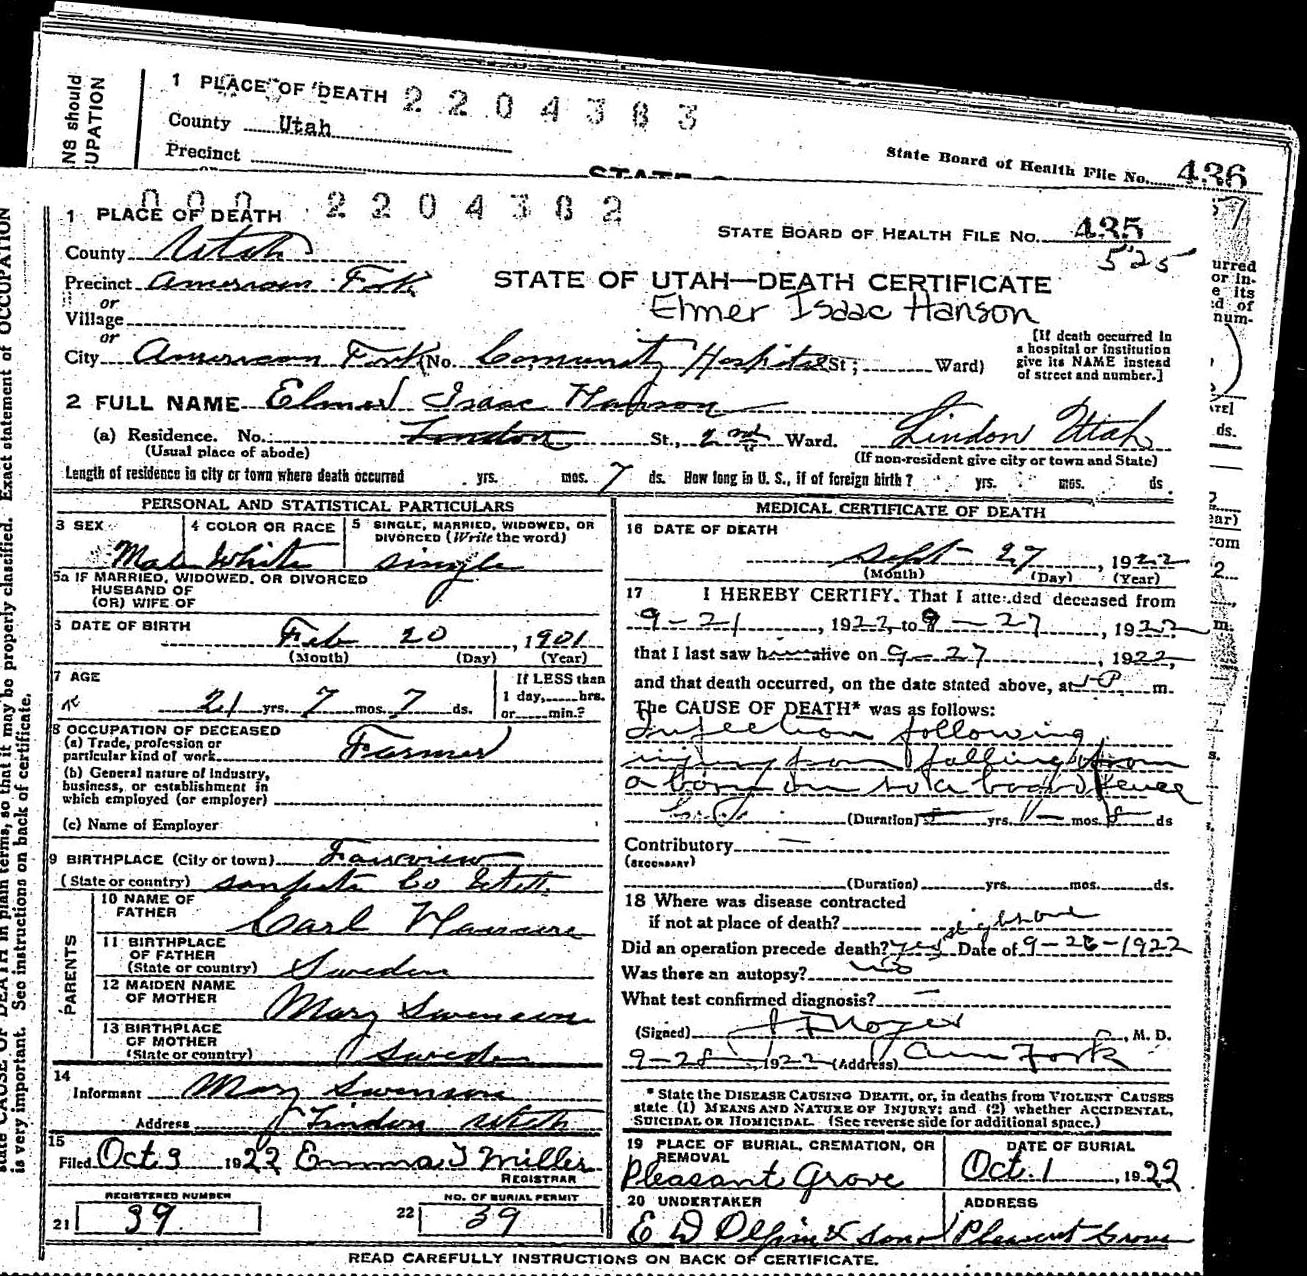 1 PLACE OF DEATH 2204383
County Utah
Precinct
State Board of Health File No. 436
NS should
UPATION
000 2204382
1 PLACE OF DEATH
STATE BOARD OF HEALTH FILE No. 435
525
County Utah
Precinct American Fork
STATE OF UTAH—DEATH CERTIFICATE
Elmer Isaac Hanson
or
Village
or
City American Fork (No. Comunity Hospital St; Ward)
[If death occurred in a hospital or institution give its NAME instead of street and number.]
2 FULL NAME Elmer Isaac Hanson
(a) Residence. No. Lindon St., 2nd Ward. Lindon Utah
(Usual place of abode) (If non-resident give city or town and State)
Length of residence in city or town where death occurred yrs. mos. 7 ds. How long in U. S., if of foreign birth? yrs. mos. ds.
PERSONAL AND STATISTICAL PARTICULARS
3 SEX 4 COLOR OR RACE 5 SINGLE, MARRIED, WIDOWED, OR DIVORCED (Write the word)
Male White single
5a IF MARRIED, WIDOWED, OR DIVORCED
HUSBAND OF
(OR) WIFE OF
6 DATE OF BIRTH
Feb 20, 1901
(Month) (Day) (Year)
7 AGE
21 yrs. 7 mos. 7 ds.
If LESS than
1 day, hrs.
or min.?
8 OCCUPATION OF DECEASED
(a) Trade, profession or
particular kind of work Farmer
(b) General nature of industry,
business, or establishment in
which employed (or employer)
(c) Name of Employer
9 BIRTHPLACE (City or town) Fairview
(State or country) Sanpete Co Utah
PARENTS
10 NAME OF
FATHER Carl
11 BIRTHPLACE
OF FATHER
(State or country) Sweden
12 MAIDEN NAME
OF MOTHER Mary Swenson
13 BIRTHPLACE
OF MOTHER
(State or country) Sweden
14
Informant Mary Swenson
Address Lindon Utah
15
Filed Oct 3 1922 Emma J Miller
REGISTRAR
REGISTERED NUMBER NO. OF BURIAL PERMIT
21 39 22 39
MEDICAL CERTIFICATE OF DEATH
16 DATE OF DEATH
Sept 27, 1922
(Month) (Day) (Year)
17 I HEREBY CERTIFY. That I attended deceased from
9-21, 1922, to 9-27, 1922
that I last saw h alive on 9-27, 1922,
and that death occurred, on the date stated above, at m.
The CAUSE OF DEATH* was as follows:
Infection following
injury from falling from
a barn on to a board fence
(Duration) yrs. mos. 8 ds
Contributory —
(SECONDARY)
(Duration) yrs. mos. ds.
18 Where was disease contracted
if not at place of death?
Did an operation precede death? yes Date of 9-26-1922
Was there an autopsy? no
What test confirmed diagnosis? —
(Signed) M. D.
9-28, 1922 (Address) Am Fork
* State the DISEASE CAUSING DEATH, or, in deaths from VIOLENT CAUSES
state (1) MEANS AND NATURE OF INJURY; and (2) whether ACCIDENTAL,
SUICIDAL OR HOMICIDAL. (See reverse side for additional space.)
19 PLACE OF BURIAL, CREMATION, OR REMOVAL DATE OF BURIAL
Pleasant Grove Oct. 1, 1922
20 UNDERTAKER ADDRESS
E D Olpin & Sons Pleasant Grove
READ CAREFULLY INSTRUCTIONS ON BACK OF CERTIFICATE.
state CAUSE OF DEATH in plain terms, so that it may be properly classified. Exact statement of OCCUPATION
is very important. See instructions on back of certificate.